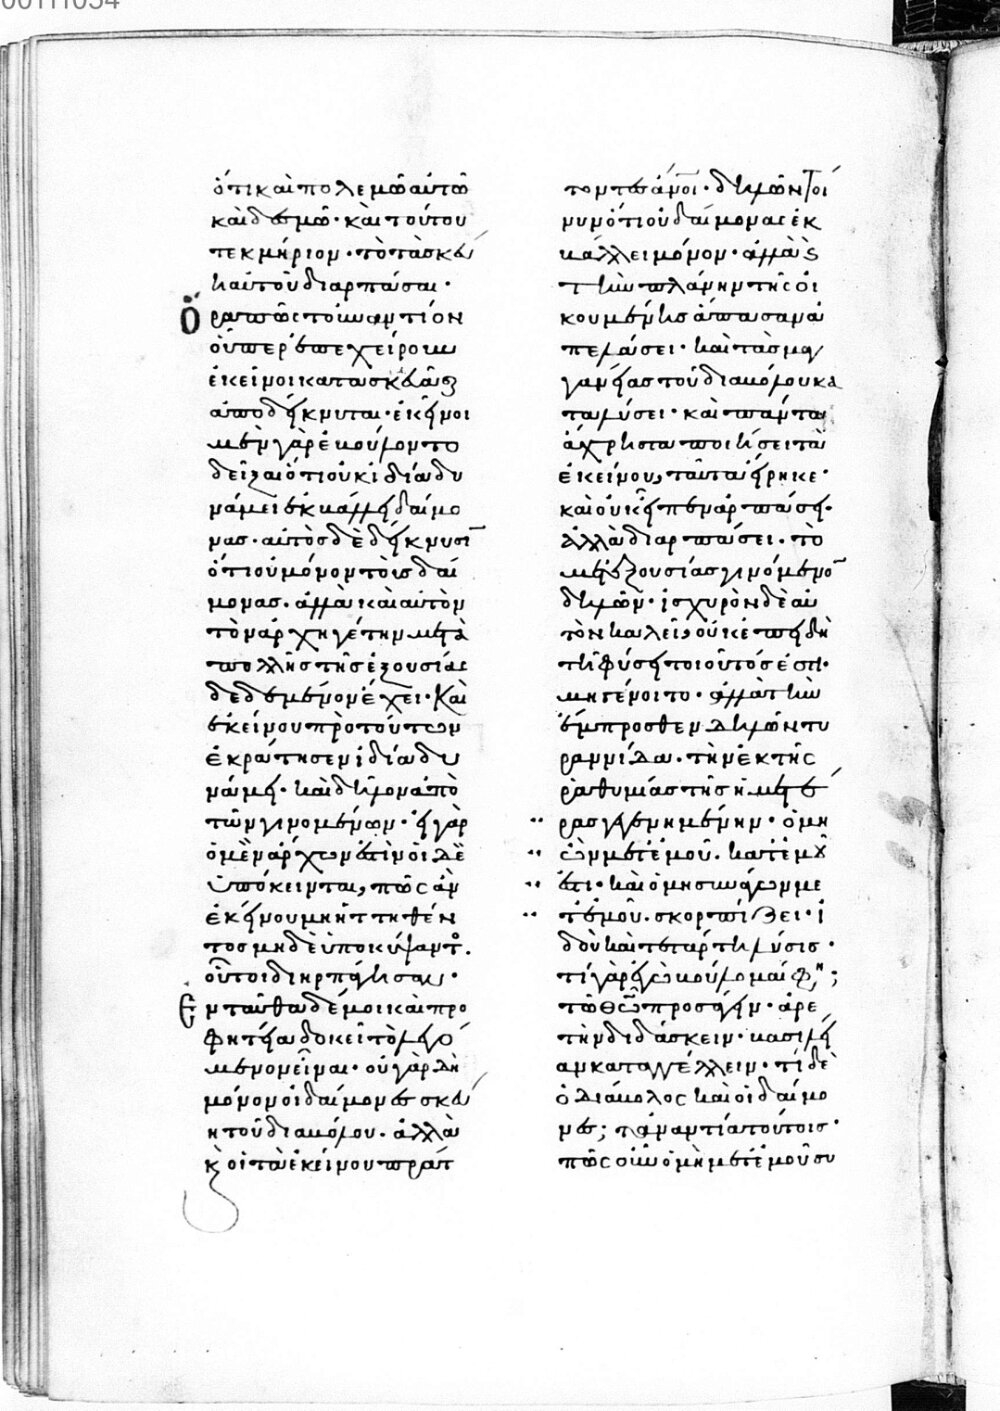 00111054
ὅτι καὶ πολεμῶ αὐτῶ
καὶ δεσμῶ· καὶ τούτου
τεκμήριον· τὸ τὰ σκεύ
η αὐτοῦ διαρπάσαι·
Ὅρα πῶς τοὐναντίον
οὗπερ ἐπεχείρουν
ἐκεῖνοι κατασκευάσαι
ἀποδείκνυται· ἐκεῖνοι
μὲν γὰρ ἐβούλοντο
δεῖξαι ὅτι οὐκ ἰδία δυ
νάμει ἐκβάλλει δαίμο
νας· αὐτὸς δὲ δείκνυσιν
ὅτι οὐ μόνον τοὺς δαί
μονας. ἀλλὰ καὶ αὐτὸν
τὸν ἀρχηγέτην μετὰ
πολλῆς τῆς ἐξουσίας
δεδεμένον ἔχει· Καὶ
ἐκείνου πρὸ τούτων
ἐκράτησεν ἰδία δυ
νάμει· καὶ δῆλον ἀπὸ
τῶν γινομένων· εἰ γὰρ
ὁ μὲν ἄρχων ἐστὶν οἱ δὲ
ὑπόκεινται, πῶς ἂν
ἐκείνου μὴ ἡττηθέν
τος μηδὲ ὑποκύψαντος.
οὗτοι διηρπάγησαν·
Ἐνταῦθα δέ μοι καὶ προ
φητεία δοκεῖ τὸ λεγό
μενον εἶναι· οὐ γὰρ δὴ
μόνον οἱ δαίμονες σκεύ
η τοῦ διαβόλου. ἀλλὰ
κ οἱ τὰ ἐκείνου πράτ
τοντες ἄνοι· δηλῶν τοί
νυν ὅτι οὐ δαίμονας ἐκ
βάλλει μόνον· ἀλλὰ κ
τὴν πλάνην τῆς οἰ
κουμένης ἅπασαν ἀ
πελάσει· καὶ τὰς μαγ
γανείας τοῦ διαβόλου κα
ταλύσει· καὶ πάντα
ἄχρηστα ποιήσει τὰ
ἐκείνου, ταῦτα εἴρηκε·
καὶ οὐκ εἶπεν ἁρπάσει·
ἀλλὰ διαρπάσει· τὸ
μετ' ἐξουσίας γινόμενον
δηλῶν· ἰσχυρὸν δὲ αὐ
τὸν καλεῖ, οὐκ ἐπειδὴ
τῆ φύσει τοιοῦτός ἐστι·
μὴ γένοιτο· ἀλλὰ τὴν
ἔμπροσθεν δηλῶν τυ
ραννίδα· τὴν ἐκ τῆς
ῥαθυμίας τῆς ἡμετέ
ρας γεγενημένην· ὁ μὴ
ὢν μετ' ἐμοῦ. κατ' ἐμοῦ
ἐστι· καὶ ὁ μὴ συνάγων με
τ' ἐμοῦ. σκορπίζει· ἰ
δοὺ καὶ τετάρτη λύσις·
τί γὰρ ἐγὼ βούλομαι φησίν;
τῶ θῶ προσάγειν· ἀρε
τὴν διδάσκειν· βασιλεί
αν καταγγέλλειν· τί δὲ
ὁ διάβολος καὶ οἱ δαίμο
νες; τἀναντία τούτοις·
πῶς οὖν ὁ μὴ μετ' ἐμοῦ συ